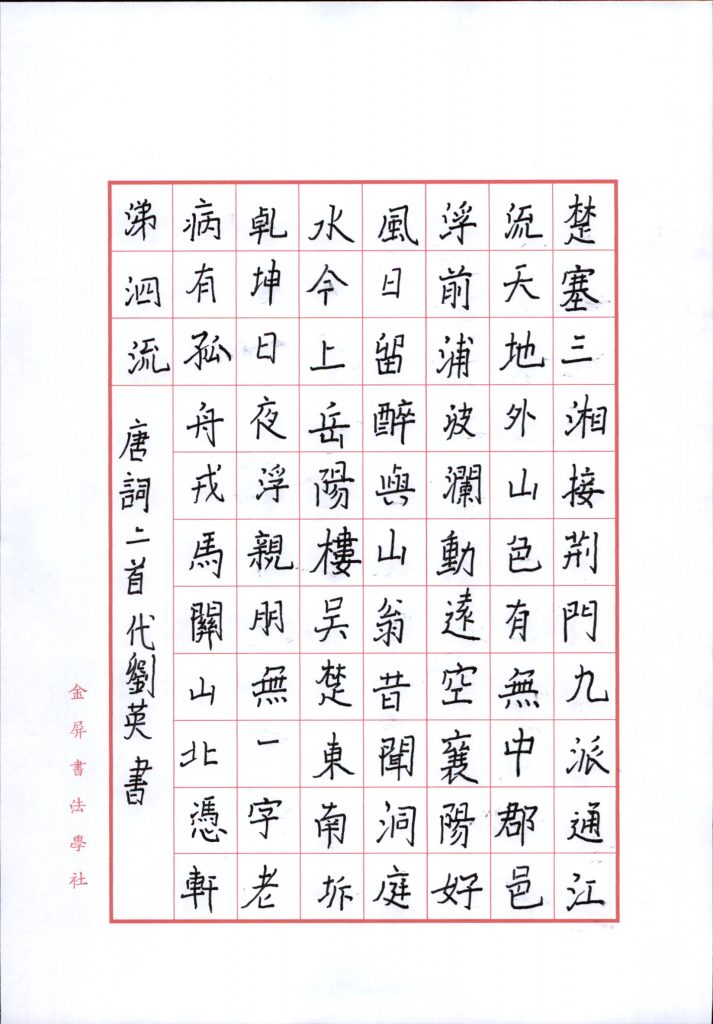 楚塞三湘接荆門九派通江
流天地外山色有無中郡邑
浮前浦波瀾動遠空襄陽好
風日留醉與山翁昔聞洞庭
水今上岳陽樓吴楚東南坼
乹坤日夜浮親朋無一字老
病有孤舟戎馬關山北憑軒
涕泗流 唐詞二首 代劉英書
金屏書法學社